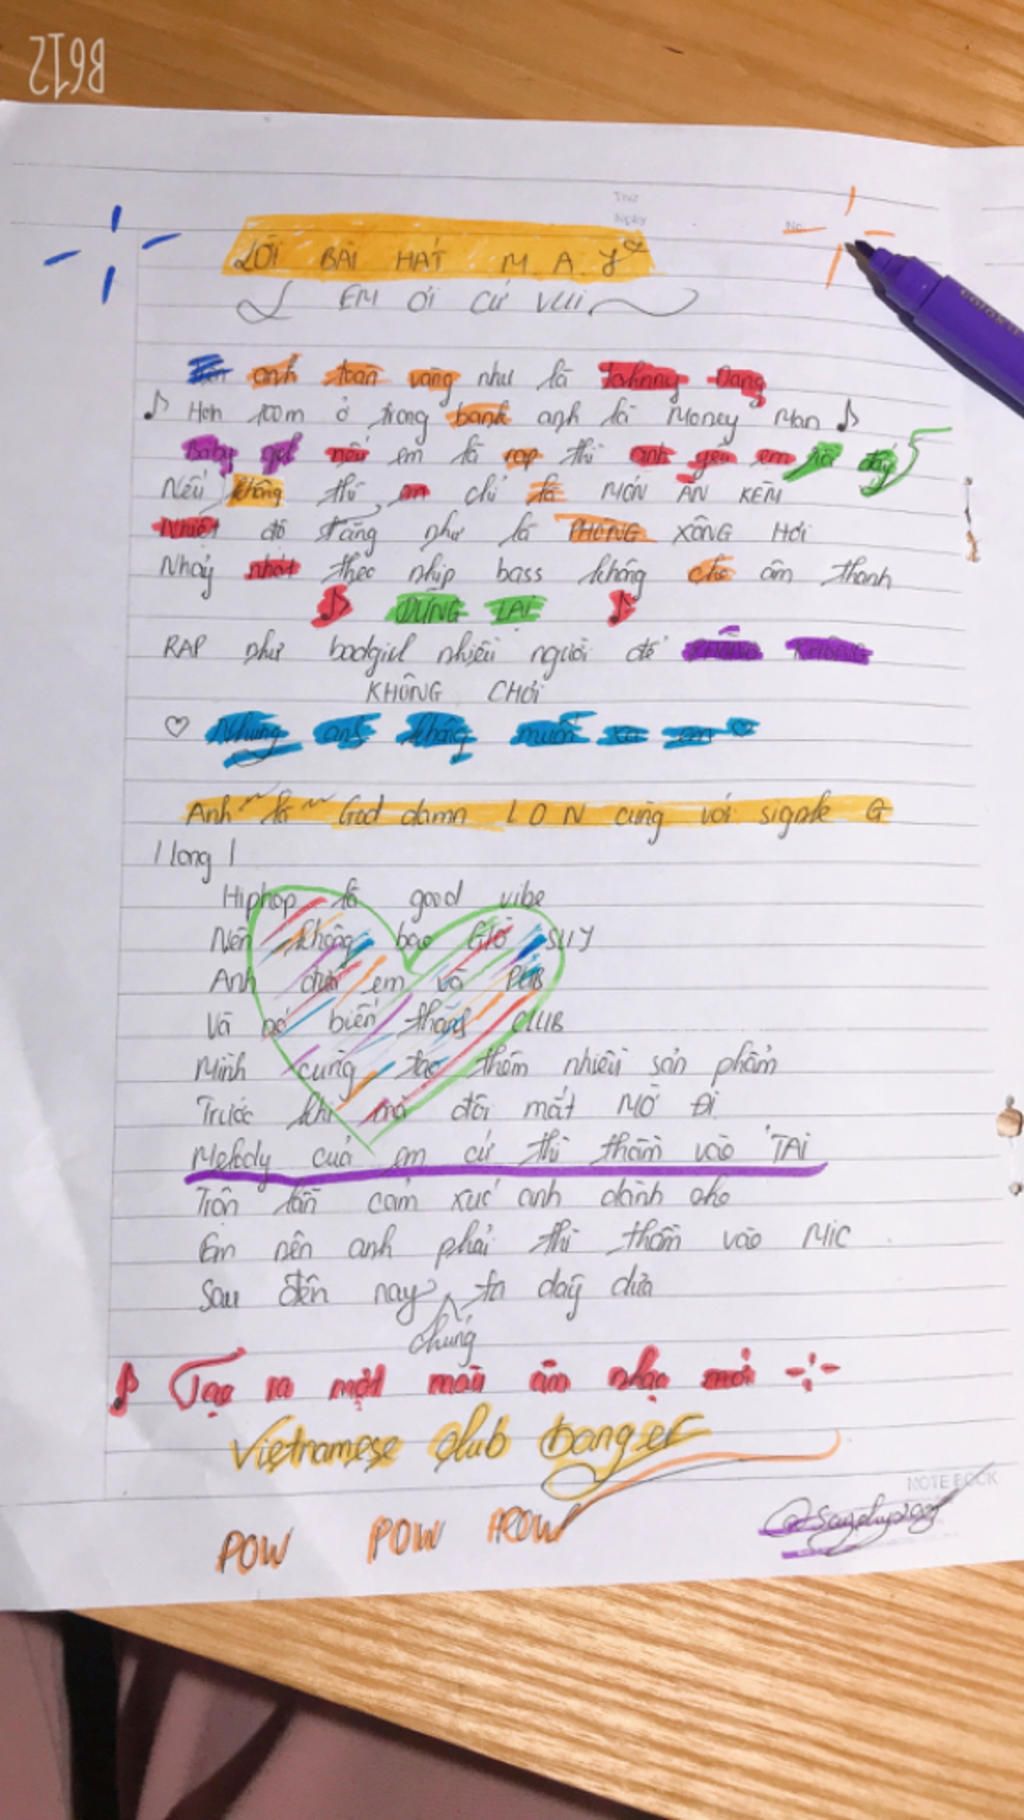 B612
Thứ
Ngày
No.
LỜI BÀI HÁT M A Y
EM ƠI CỨ VUI
Trên anh toàn vàng như là Johnny Dang
Hơn 100m ở trong bank anh là Money Man
Baby girl nếu em là rap thì anh yêu em rồi đấy
Nếu không thì em chỉ là MÓN ĂN KÈM
Nhiệt độ tăng như là PHÒNG XÔNG HƠI
Nhảy nhót theo nhịp bass không cho âm thanh
DỪNG LẠI
RAP như badgirl nhiều người đổ KHÔNG
KHÔNG CHƠI
Nhưng anh không muốn xa em
Anh là God damn L O N cùng với signle G
/ long /
Hiphop là good vibe
Nên không bao GIỜ SUY
Anh đưa em và PUB
Và nó biến thành CLUB
Mình cùng tạo thêm nhiều sản phẩm
Trước khi mà đôi mắt MỞ ĐI
Melody của em cứ thì thầm vào TAI
Tròn lần cảm xúc anh dành cho
Em nên anh phải thì thầm vào MIC
Sau đến nay chúng ta đây đưa
Tạo ra một màu âm nhạc mới
Vietnamese club banger
NOTEBOOK
POW POW POW